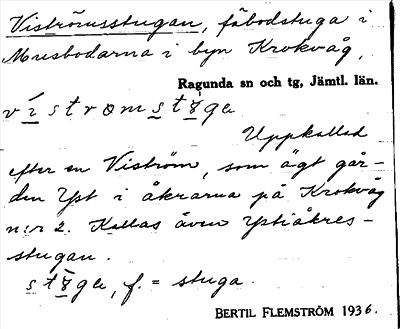 Viströmsstugan, fäbodstuga i
Morsbodarna i byn Krokvåg,
Ragunda sn och tg, Jämtl. län.
Uppkallad
efter en Viström, som ägt går-
den Yst i åkrarna på Krokvåg
n:r 2. Kallas även Ystiåkres-
stugan.
f. = stuga.
BERTIL FLEMSTRÖM 1936.